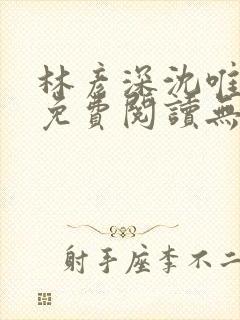 林彥深沈唯
免費閱讀無
射手座李不二